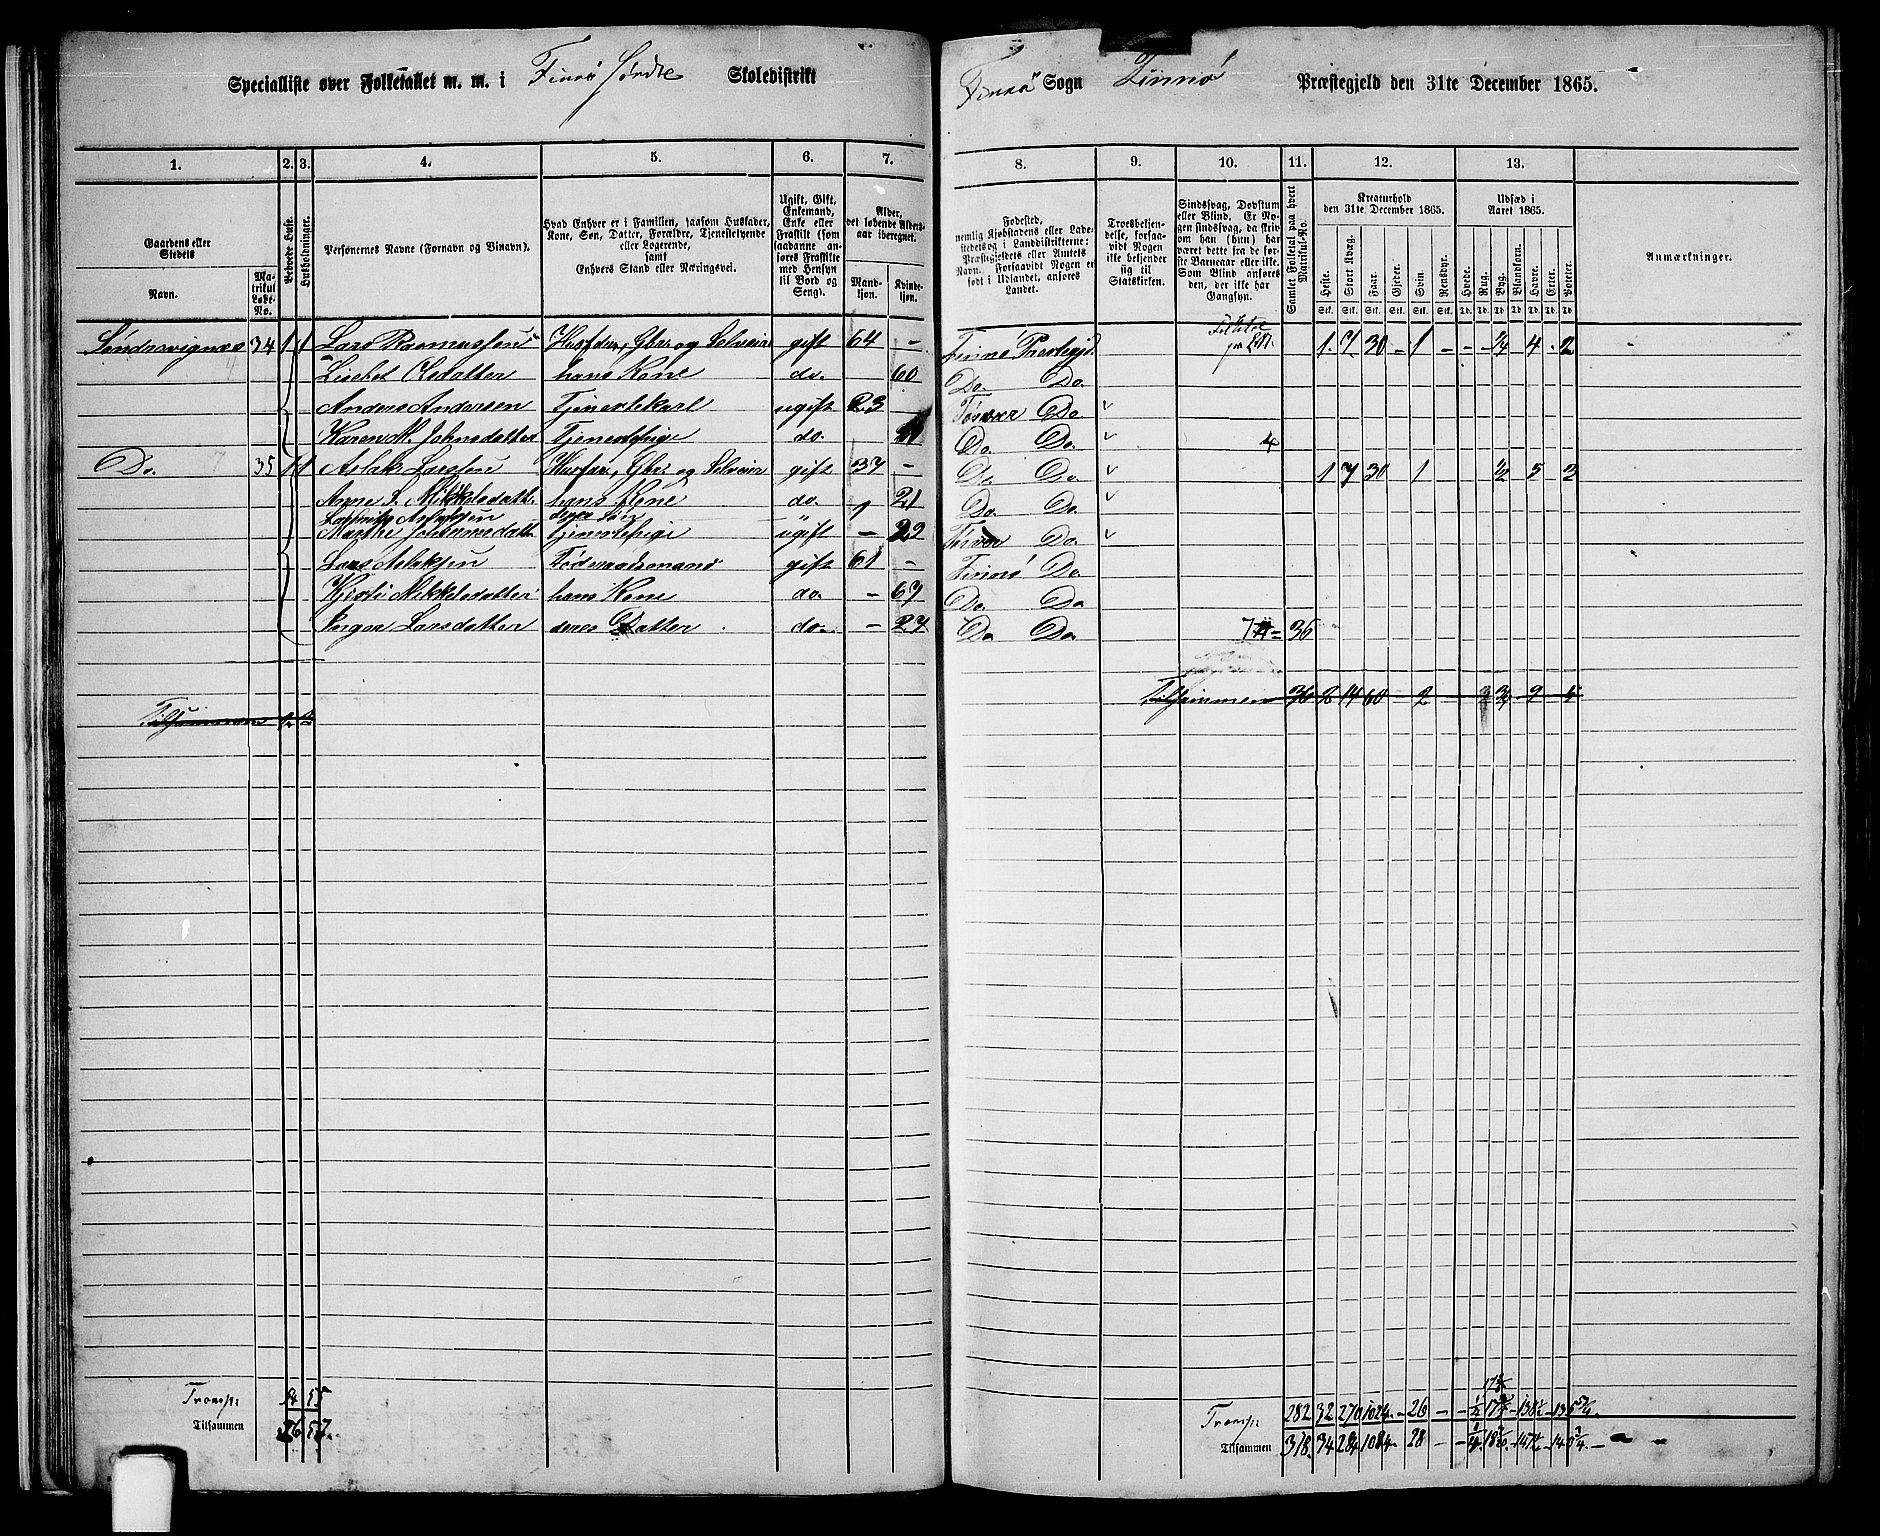 Specialliste over Folketallet m. m. i Finnø Søndre Skoledistrikt
Finnø Sogn Finnø Præstegjeld den 31te December 1865.
1. 2. 3. 4. 5. 6. 7. 8. 9. 10. 11. 12. 13.
Gaardens eller Stedets
Navn.
Matrikul Løbe-No.
Beboede Huse.
Husholdninger.
Personernes Navne (Fornavn og Binavn).
Hvad Enhver er i Familien, saasom Husfader, Kone, Søn, Datter, Forældre, Tjenestetyende eller Logerende, samt Enhvers Stand eller Næringsvei.
Ugift, Gift, Enkemand, Enke eller Fraskilt (som saadanne anføres Fraskilte med Hensyn til Bord og Seng).
Alder, det løbende Aldersaar iberegnet.
Mandkjøn. Kvindekjøn.
Fødested, nemlig Kjøbstadens eller Ladestedets og i Landdistrikterne: Præstegjeldets eller Amtets Navn. Forsaavidt Nogen er født i Udlandet, anføres Landet.
Troesbekjendelse, forsaavidt Nogen ikke bekjender sig til Statskirken.
Sindssvag, Døvstum eller Blind. Er Nogen sindssvag, da skrives om han (hun) har været dette fra de første Barneaar eller ikke. Som Blind anføres den, der ikke har Gangsyn.
Samlet Folketal paa hvert Matrikul-No.
Kreaturhold den 31te December 1865.
Heste. Stort Kvæg. Faar. Gjeder. Svin. Rensdyr.
Udsæd i Aaret 1865.
Hvede. Rug. Byg. Blandkorn. Havre. Erter. Poteter.
Anmærkninger.
Søndresvignæs 34 1 1 Lars Rasmussen Husfader, Gbr. og Selveier gift 64 - Finnø Prestegjd. 1 7 30 - 1 - - - 1/4 - 4 - 2
Lisebet Olsdatter hans Kone do. 60 Do. Do.
Anders Andersen Tjenestekarl ugift 23 Do.
Karen M. Johnsdatter Tjenestepige do. Do. Do. 4
Do. 35 1 1 Aslak Larssen Husfar, Gbr og Selveier gift 37 - Do. Do. 1 7 30 1 1/2 5 3
Anne S. Mikkelsdatter hans Kone do. 21 Do. Do.
Aslaksen deres Søn 1
Marthe Johannesdatter Tjenestepige ugift - 22 Do.
Lars Aslaksen Føderaadsmand gift 61 - Finnø Do.
Kjirsti Mikkelsdatter hans Kone do. - 67 Do. Do
Inger Larsdatter deres Datter do. - 27 Do Do 7 = 36
Tilsammen 36 2 14 60 - 2 - - 3/4 - 9 - 5
Tilsammen 2 2
Transp. 54 55
Tilsammen 56 57.
Transp 282 32 270 1024 - 26 - - 1/2 17 - 138 1/2 - 135 3/4.
Tilsammen 318. 34 284 1084. - 28 - - 147 1/2 - 140 3/4. -